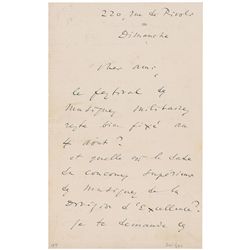 220, rue de Rivoli
Dimanche
Cher ami,
le festival de
Musiques Militaires
reste bien fixé au
4 août?
et quelle est la date
du concours supérieur
de Musiques de la
Division d'Excellence?
je te demande de